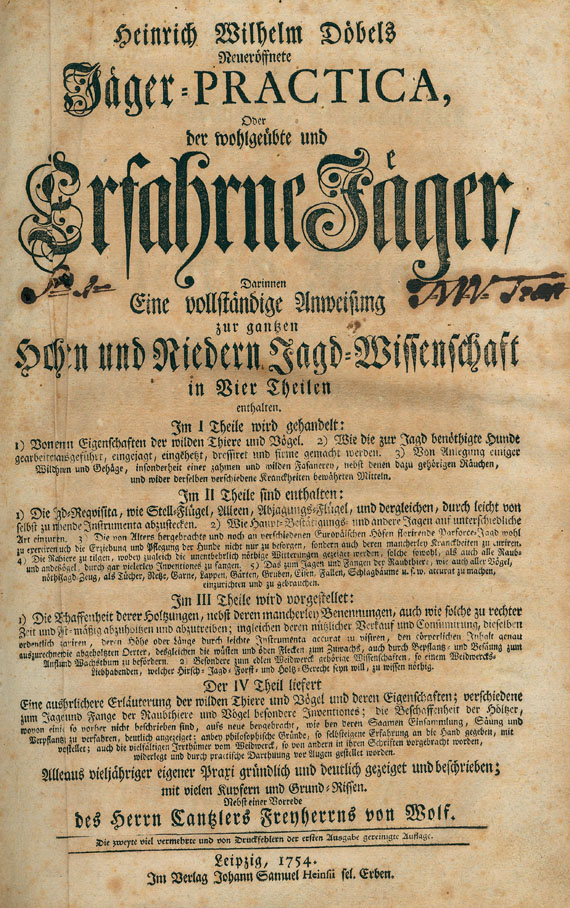 Heinrich Wilhelm Döbels
Neueröffnete
Jäger-PRACTICA,
Oder
der wohlgeübte und
Erfahrne Jäger,
Darinnen
Eine vollständige Anweisung
zur gantzen
Hohen und Niedern Jagd-Wissenschaft
in Vier Theilen
enthalten.
Im I Theile wird gehandelt:
1) Von Eigenschaften der wilden Thiere und Vögel. 2) Wie die zur Jagd benöthigte Hunde
gearbeitet ausgeführt, eingejagt, eingehetzt, dressiret und firme gemacht werden. 3) Von Anlegung einiger
Wildbahnen und Gehäge, insonderheit einer zahmen und wilden Fasanerey, nebst denen dazu gehörigen Räuchen,
und wider derselben verschiedene Kranckheiten bewährten Mitteln.
Im II Theile sind enthalten:
1) Die Jagd-Reqvisita, wie Stell-Flügel, Alleen, Abjagungs-Flügel, und dergleichen, durch leicht von
selbst zu Instrumenta abzustecken. 2) Wie Haupt- Bestätigungs- und andere Jagen auf unterschiedliche
Art einzurichten. 3) Die von Alters hergebrachte und noch an verschiedenen Europäischen Höfen florirende Parforce-Jagd wohl
zu exerciren auch die Erziehung und Pflegung der Hunde nicht nur zu besorgen, sondern auch deren mancherley Kranckheiten zu curiren.
4) Die Reviere zu zeigen, wobey zugleich die unentbehrlich nöthige Witterungen gezeiget werden, solche sowohl, als auch alle Raub-
und andere Vögel, durch gar vielerley Inventiones zu fangen. 5) Das zum Jagen und Fangen der Raubthiere, wie auch aller Vögel,
nöthige Jagd-Zeug, als Tücher, Netze, Garne, Lappen, Gärten, Gruben, Eisen, Fallen, Schlagbäume u. s. w. accurat zu machen,
einzurichten und zu gebrauchen.
Im III Theile wird vorgestellet:
1) Die Beschaffenheit derer Holtzungen, nebst deren mancherley Benennungen, auch wie solche zu rechter
Zeit und forst-mäßig abzuholzen und abzutreiben; ingleichen deren nützlicher Verkauf und Consumirung, dieselben
ordentlich zu visiren, deren Höhe oder Länge durch leichte Instrumenta accurat zu visiren, den cörperlichen Inhalt genau
auszurechnen, wie abgeholzten Oerter, desgleichen die wüsten und öden Flecken zum Zuwachs, auch durch Verpflantz- und Besäung zum
Anflug und Wachsthum zu befördern. 2) Besondere zum edlen Weidwerck gehörige Wissenschaften, so einem Weidwercks-
Liebhabenden, welcher Hirsch- Jagd- Forst- und Holtz-Gerecht seyn will, zu wissen nöthig.
Der IV Theil liefert
Eine ausführliche Erläuterung der wilden Thiere und Vögel und deren Eigenschaften; verschiedene
zum Jagen und Fange der Raubthiere und Vögel besondere Inventiones; die Beschaffenheit der Höltzer,
wovon einige so vorher nicht beschrieben sind, aufs neue hergebracht, wie bey deren Saamen Einsammlung, Säung und
Verpflantzung zu verfahren, deutlich angezeiget; anbey philosophische Gründe, so selbsteigene Erfahrung an die Hand gegeben, mit
vorstellet; auch die vielfältigen Irrthümer vom Weidwerck, so von andern in ihren Schriften vorgebracht worden,
widerlegt und durch practische Darthuung vor Augen gestellet worden.
Alles aus vieljähriger eigener Praxi gründlich und deutlich gezeiget und beschrieben;
mit vielen Kupfern und Grund-Rissen.
Nebst einer Vorrede
des Herrn Cantzlers Freyherrns von Wolf.
Die zweyte viel vermehrte und von Druckfehlern der ersten Ausgabe gereinigte Auflage.
Leipzig, 1754.
Im Verlag Johann Samuel Heinsii sel. Erben.